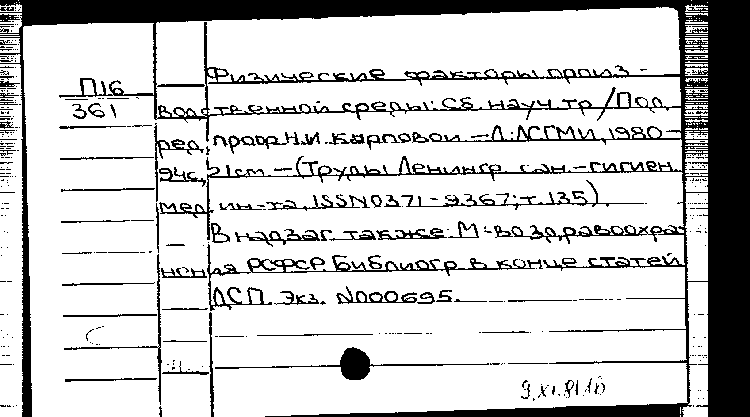 П16
361
Физические факторы произ-
водственной среды: Сб. науч. тр / Под
ред. проф. Н.И. Карповой — Л: ЛСГМИ, 1980 —
94с, 21cm. — (Труды Ленингр. сан.-гигиен.
мед. ин-та, ISSN 0371-9367; т. 135).
В надзаг. также: М-во здравоохра-
нения РСФСР. Библиогр в конце статей
ДСП. Экз. N000695.
С
9.XI.81